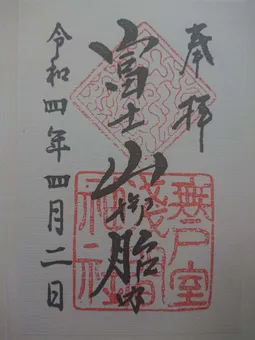 奉拝
富士山御胎内
令和四年四月二日
無戸室
淺間
神社